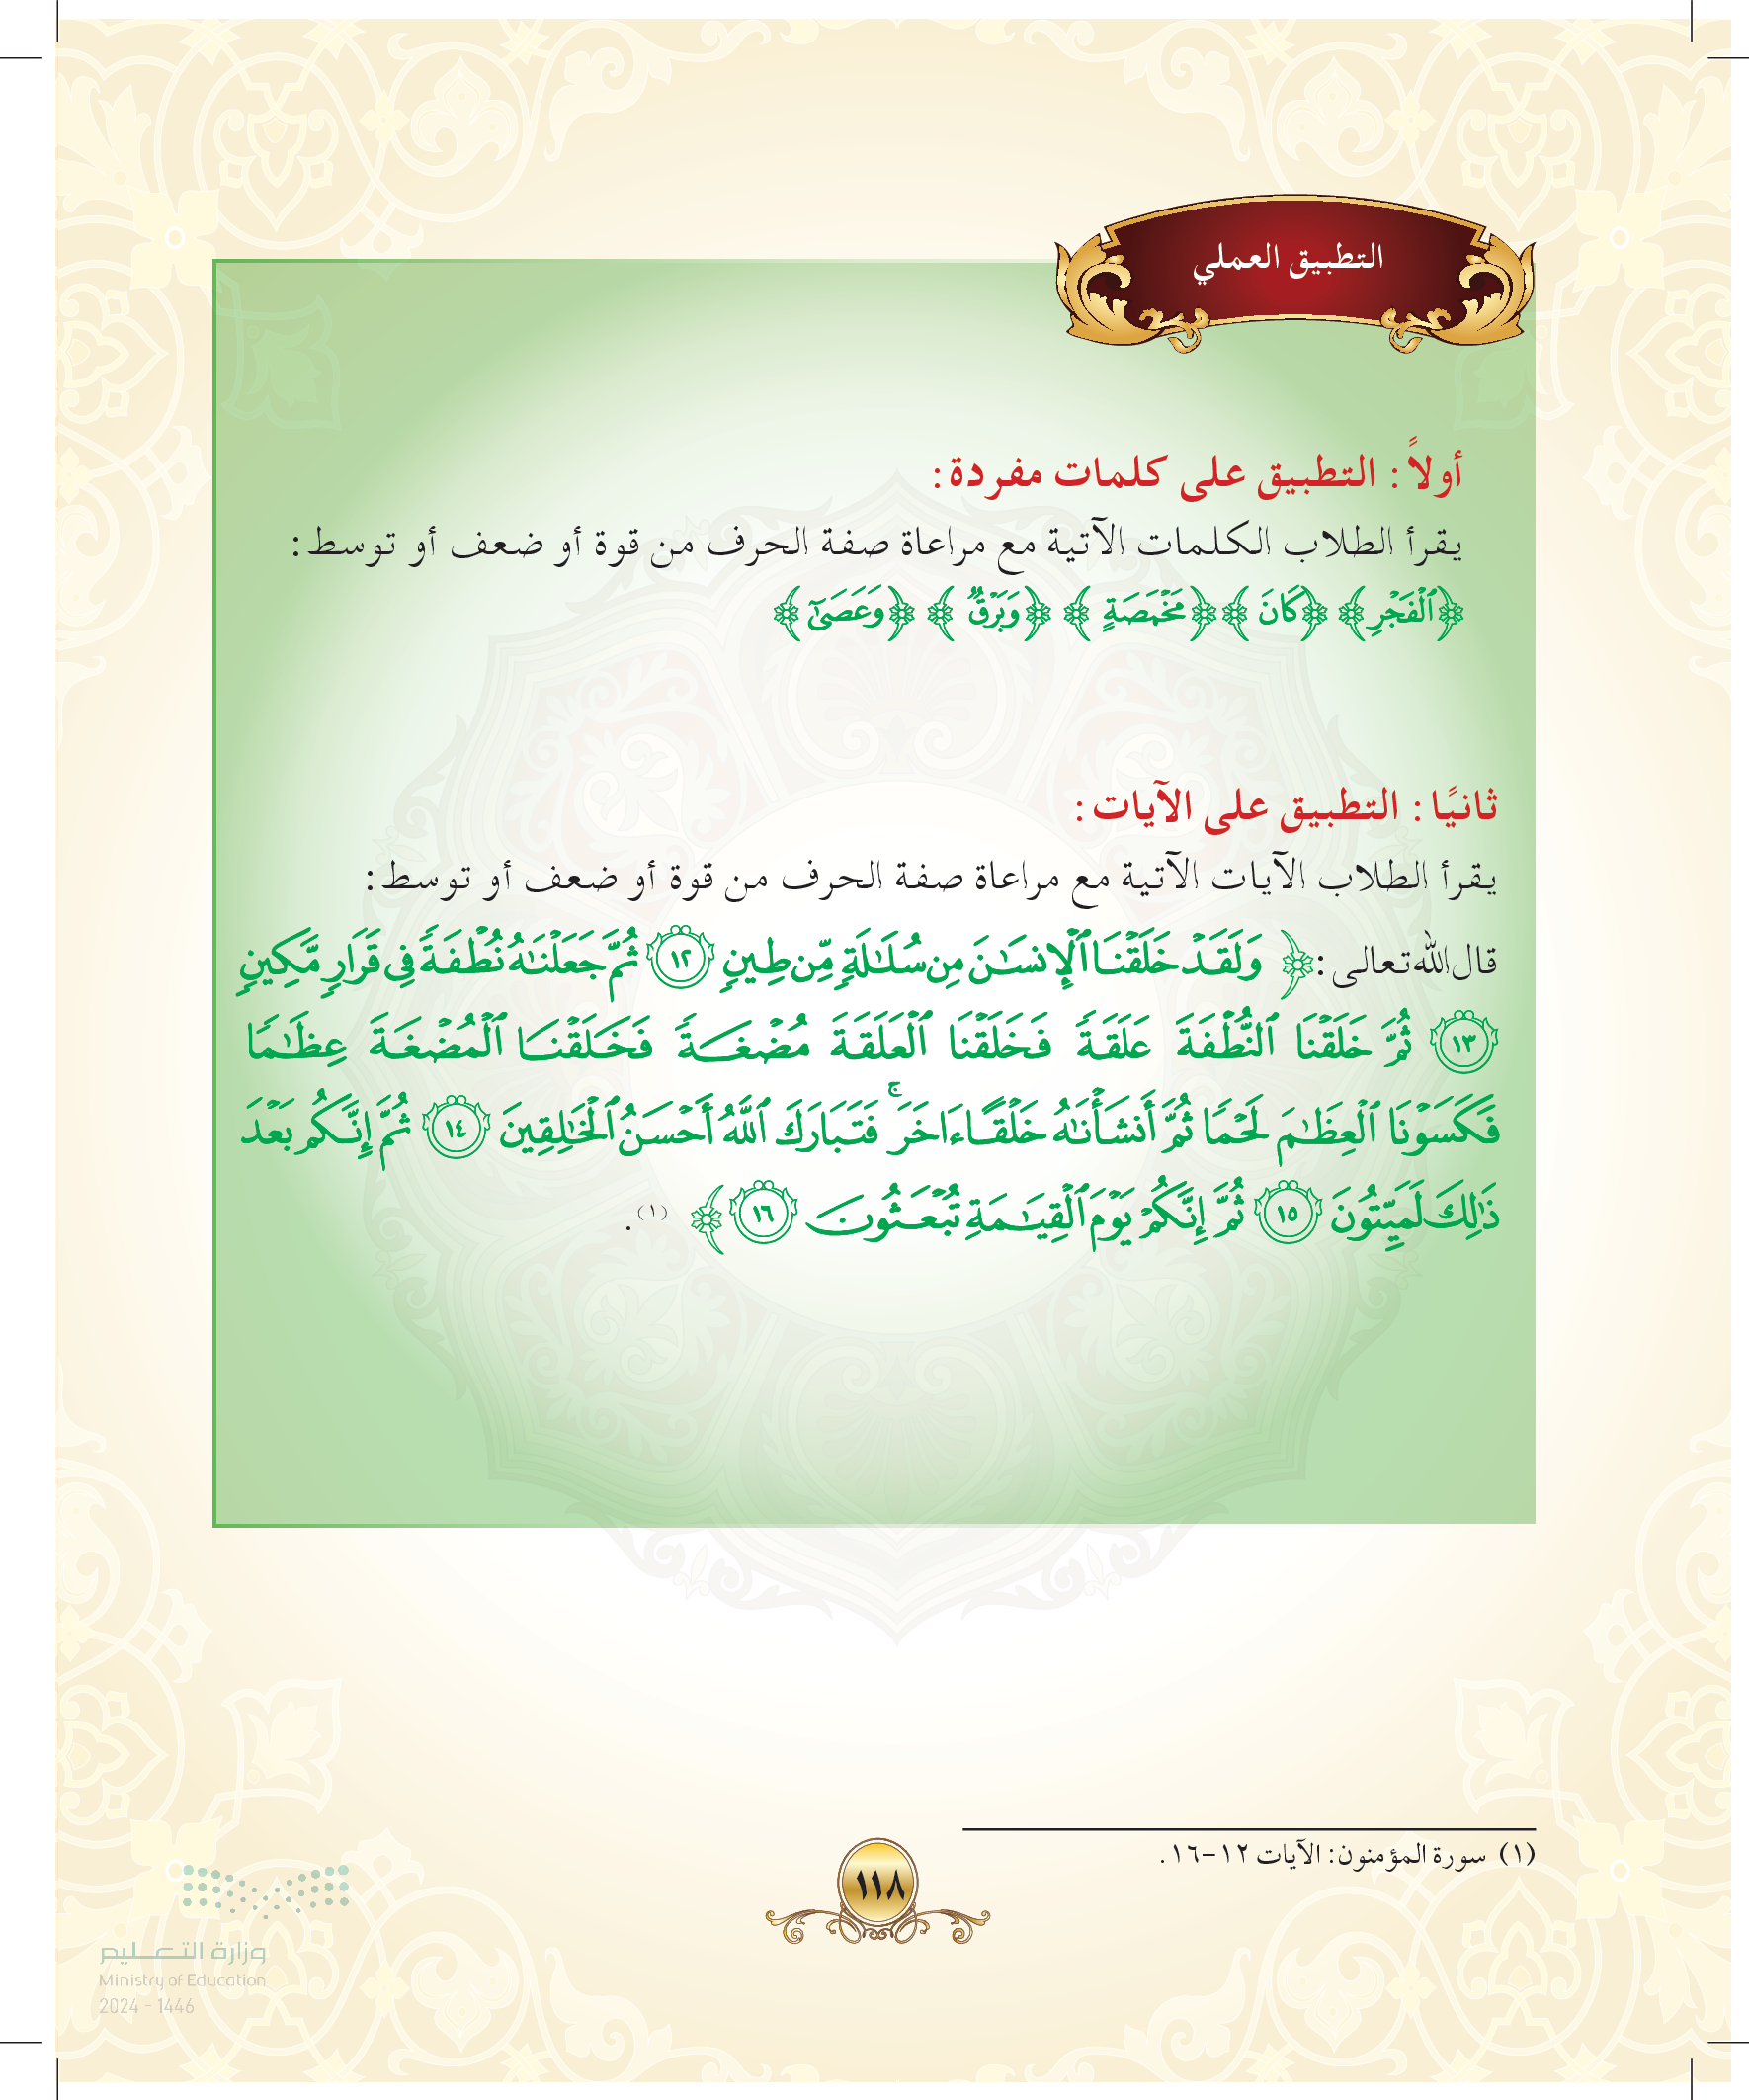 التطبيق العملي
أولاً: التطبيق على كلمات مفردة:
يقرأ الطلاب الكلمات الآتية مع مراعاة صفة الحرف من قوة أو ضعف أو توسط:
﴿ٱلْفَجْرِ﴾ ﴿كَانَ﴾ ﴿مَخْمَصَةٍ﴾ ﴿وَبَرْقٌ﴾ ﴿وَعَصَىٰٓ﴾
ثانيًا: التطبيق على الآيات:
يقرأ الطلاب الآيات الآتية مع مراعاة صفة الحرف من قوة أو ضعف أو توسط:
قال الله تعالى: ﴿وَلَقَدْ خَلَقْنَا ٱلْإِنسَٰنَ مِن سُلَٰلَةٍ مِّن طِينٍ ١٢ ثُمَّ جَعَلْنَٰهُ نُطْفَةً فِى قَرَارٍ مَّكِينٍ
١٣ ثُمَّ خَلَقْنَا ٱلنُّطْفَةَ عَلَقَةً فَخَلَقْنَا ٱلْعَلَقَةَ مُضْغَةً فَخَلَقْنَا ٱلْمُضْغَةَ عِظَٰمًا
فَكَسَوْنَا ٱلْعِظَٰمَ لَحْمًا ثُمَّ أَنشَأْنَٰهُ خَلْقًا ءَاخَرَ ۚ فَتَبَارَكَ ٱللَّهُ أَحْسَنُ ٱلْخَٰلِقِينَ ١٤ ثُمَّ إِنَّكُم بَعْدَ
ذَٰلِكَ لَمَيِّتُونَ ١٥ ثُمَّ إِنَّكُمْ يَوْمَ ٱلْقِيَٰمَةِ تُبْعَثُونَ ١٦﴾ (١).
(١) سورة المؤمنون: الآيات ١٢-١٦.
١١٨
وزارة التعليم
Ministry of Education
2024 - 1446